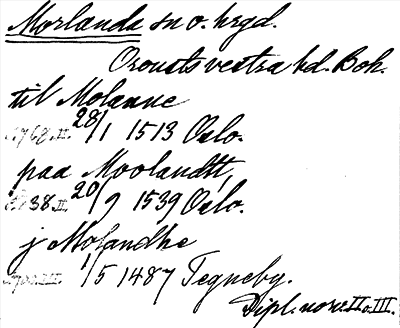 Morlanda sn o. hrgd.
Orousts vestra hd. Boh.
til Molanne
28/1 1513 Oslo.
paa Moolandtt,
38.II. 20/9 1539 Oslo.
j Molandhe
1/5 1487 Tegneby.
Dipl. norv. II o. III.